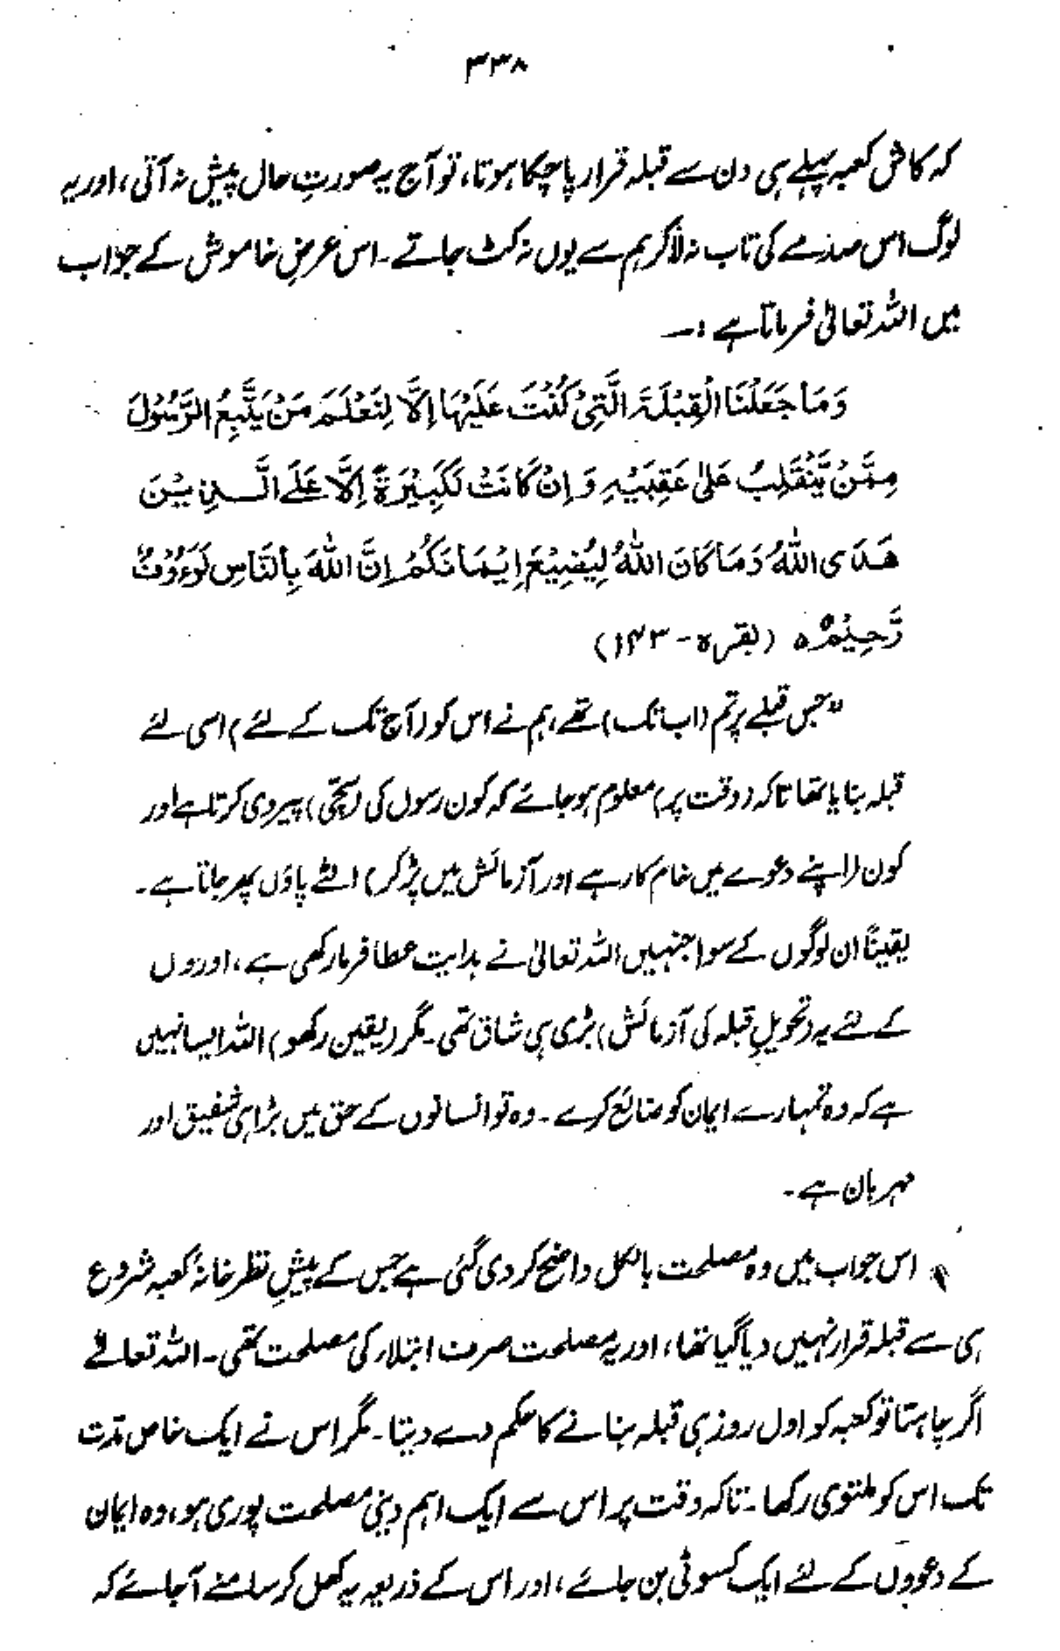 ۳۳۸
کہ کاش کعبہ پہلے ہی دن سے قبلہ قرار پا چکا ہوتا، تو آج یہ صورتِ حال پیش نہ آتی، اور یہ
لوگ اس صدمے کی تاب نہ لا کر ہم سے یوں نہ کٹ جاتے۔ اس عرضِ خاموش کے جواب
میں اللہ تعالیٰ فرماتا ہے :۔
وَمَا جَعَلْنَا الْقِبْلَةَ الَّتِيْ كُنْتَ عَلَيْهَا اِلَّا لِنَعْلَمَ مَنْ يَّتَّبِعُ الرَّسُوْلَ
مِمَّنْ يَّنْقَلِبُ عَلٰى عَقِبَيْهِ وَاِنْ كَانَتْ لَكَبِيْرَةً اِلَّا عَلَى الَّذِيْنَ
هَدَى اللّٰهُ وَمَا كَانَ اللّٰهُ لِيُضِيْعَ اِيْمَانَكُمْ اِنَّ اللّٰهَ بِالنَّاسِ لَرَءُوْفٌ
رَّحِيْمٌ ه (بقرہ - ۱۴۳)
"جس قبلے پر تم (اب تک) تھے، ہم نے اس کو (آج تک کے لئے) اسی لئے
قبلہ بنایا تھا تاکہ (وقت پر) معلوم ہو جائے کہ کون رسول کی (سچی) پیروی کرتا ہے اور
کون (اپنے دعوے میں خام کار ہے اور آزمائش میں پڑ کر) الٹے پاؤں پھر جاتا ہے۔
یقیناً ان لوگوں کے سوا جنہیں اللہ تعالیٰ نے ہدایت عطا فرما رکھی ہے، اوروں
کے لئے یہ (تحویلِ قبلہ کی آزمائش) بڑی ہی شاق تھی۔ مگر (یقین رکھو) اللہ ایسا نہیں
ہے کہ وہ تمہارے ایمان کو ضائع کرے۔ وہ تو انسانوں کے حق میں بڑا ہی شفیق اور
مہربان ہے۔
اس جواب میں وہ مصلحت بالکل واضح کر دی گئی ہے جس کے پیشِ نظر خانۂ کعبہ شروع
ہی سے قبلہ قرار نہیں دیا گیا تھا، اور یہ مصلحت صرف ابتلاء کی مصلحت تھی۔ اللہ تعالےٰ
اگر چاہتا تو کعبہ کو اول روز ہی قبلہ بنانے کا حکم دے دیتا۔ مگر اس نے ایک خاص مدّت
تک اس کو ملتوی رکھا۔ تاکہ وقت پر اس سے ایک اہم دینی مصلحت پوری ہو، وہ ایمان
کے دعووں کے لئے ایک کسوٹی بن جائے، اور اس کے ذریعہ یہ کھل کر سامنے آ جائے کہ